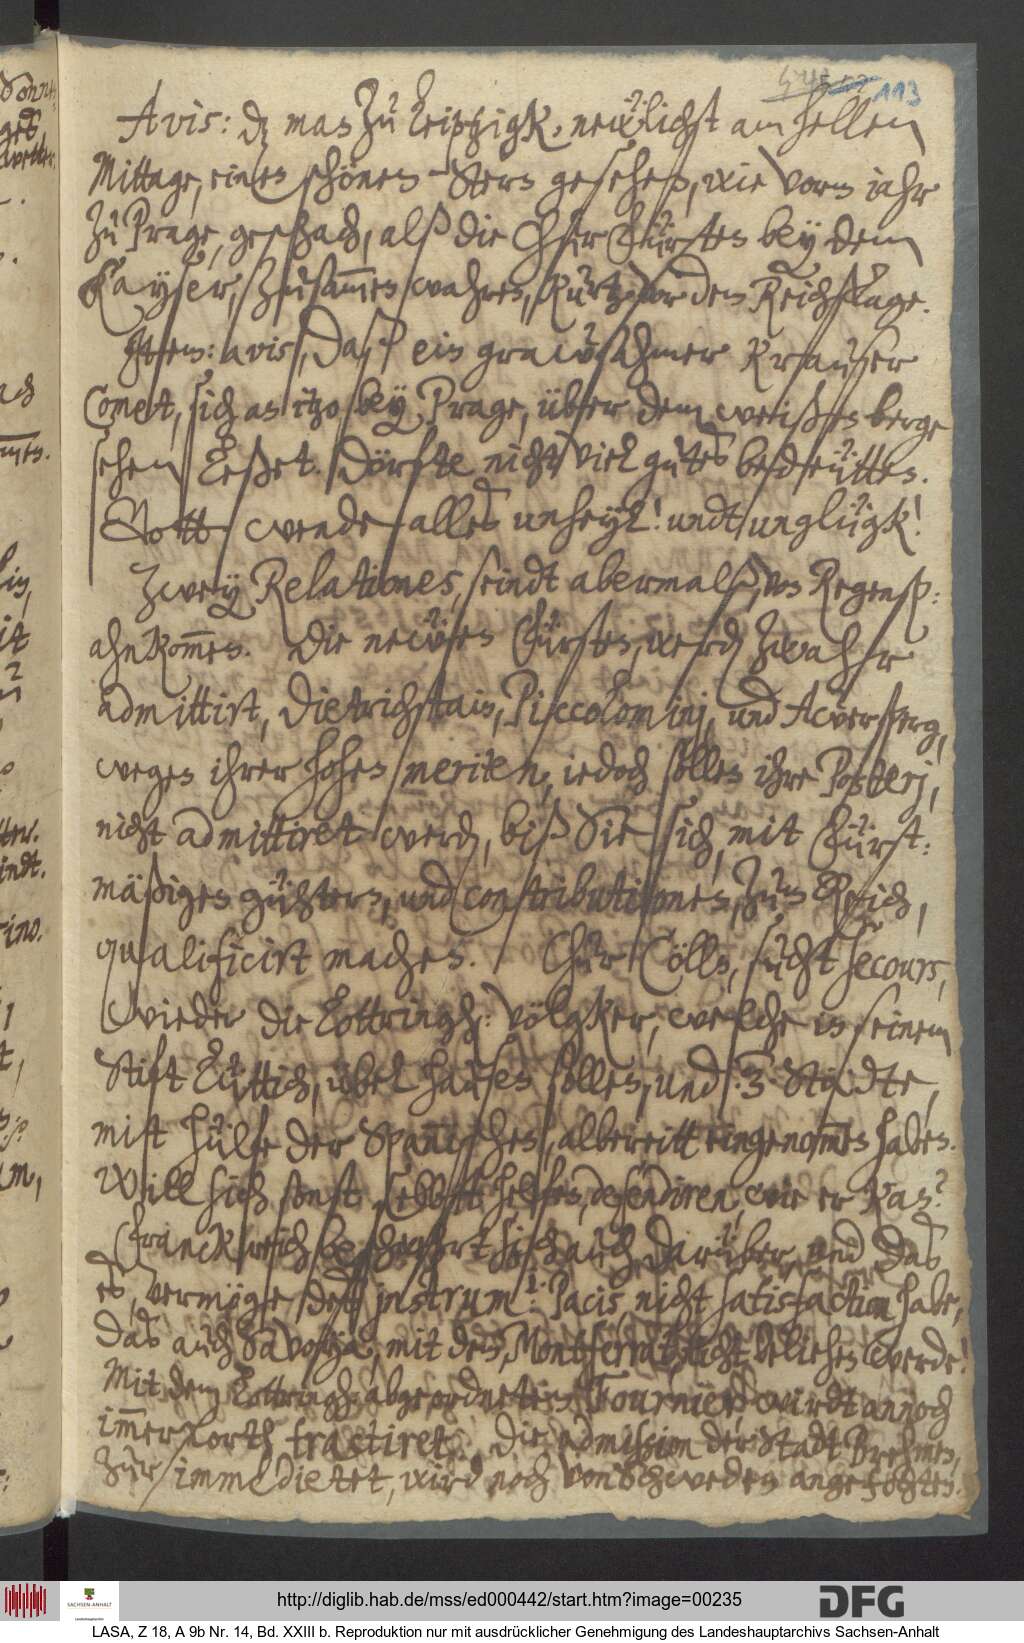 113
Avis: dz man zu Leiptzigk, neẅlichst am hellen
Mittage, einen schönen Stern gesehen, wie vorm iahr
zu Prage, geschach, alß die ChurFürsten bey dem
Kayser, zusam̅en wahren, kurtz vor dem Reichstage.
Item: avis, daß ein graẅsahmer krauser
Comet, sich an itzo bey Prage, über dem weißen berge
sehen leßet. Dörfte nicht viel gutes bedeütten.
Gott wende alles unheyl! undt unglügk!
Zwey Relationes, seindt abermalß, von Regenß:
ahnkom̅en. Die neẅen Fürsten, werd zwahr
admittirt, Dietrichstain, Piccolominj, und Aversperg,
wegen ihrer hohen meriten, iedoch sollen ihre Posterj,
nicht admittiret werd, biß Sie sich, mit Fürst:
mäßigen gühtern, und contributionen, zum Reich,
qualificirt machen. Chur Cölln, sucht secours,
wieder die Lottringh: völgker, welche in seinem
Stift Lüttich, übel hausen sollen, und .3. Städte,
mitt hülfe der Spannischen, albereitt eingenom̅en haben.
Will sich sonst selbst helfen, defendiren, wie er kan?
Franckreich beschwehrt sich auch darüber, und das
es, vermöge deß jnstrum: Pacis, nicht satisfaction habe,
das auch Savoya, mit dem Montferrat, nicht beliehen werde!
Mit dem Lottringh: abgeordneten, Fournier, wirdt annoch
im̅er forth, tractiret. Die admission der Stadt Brehmen,
zur immedietet, wird noch von Schweden angefochten.
http://diglib.hab.de/mss/ed000442/start.htm?image=00235
DFG
SACHSEN-ANHALT
LASA, Z 18, A 9b Nr. 14, Bd. XXIII b. Reproduktion nur mit ausdrücklicher Genehmigung des Landeshauptarchivs Sachsen-Anhalt